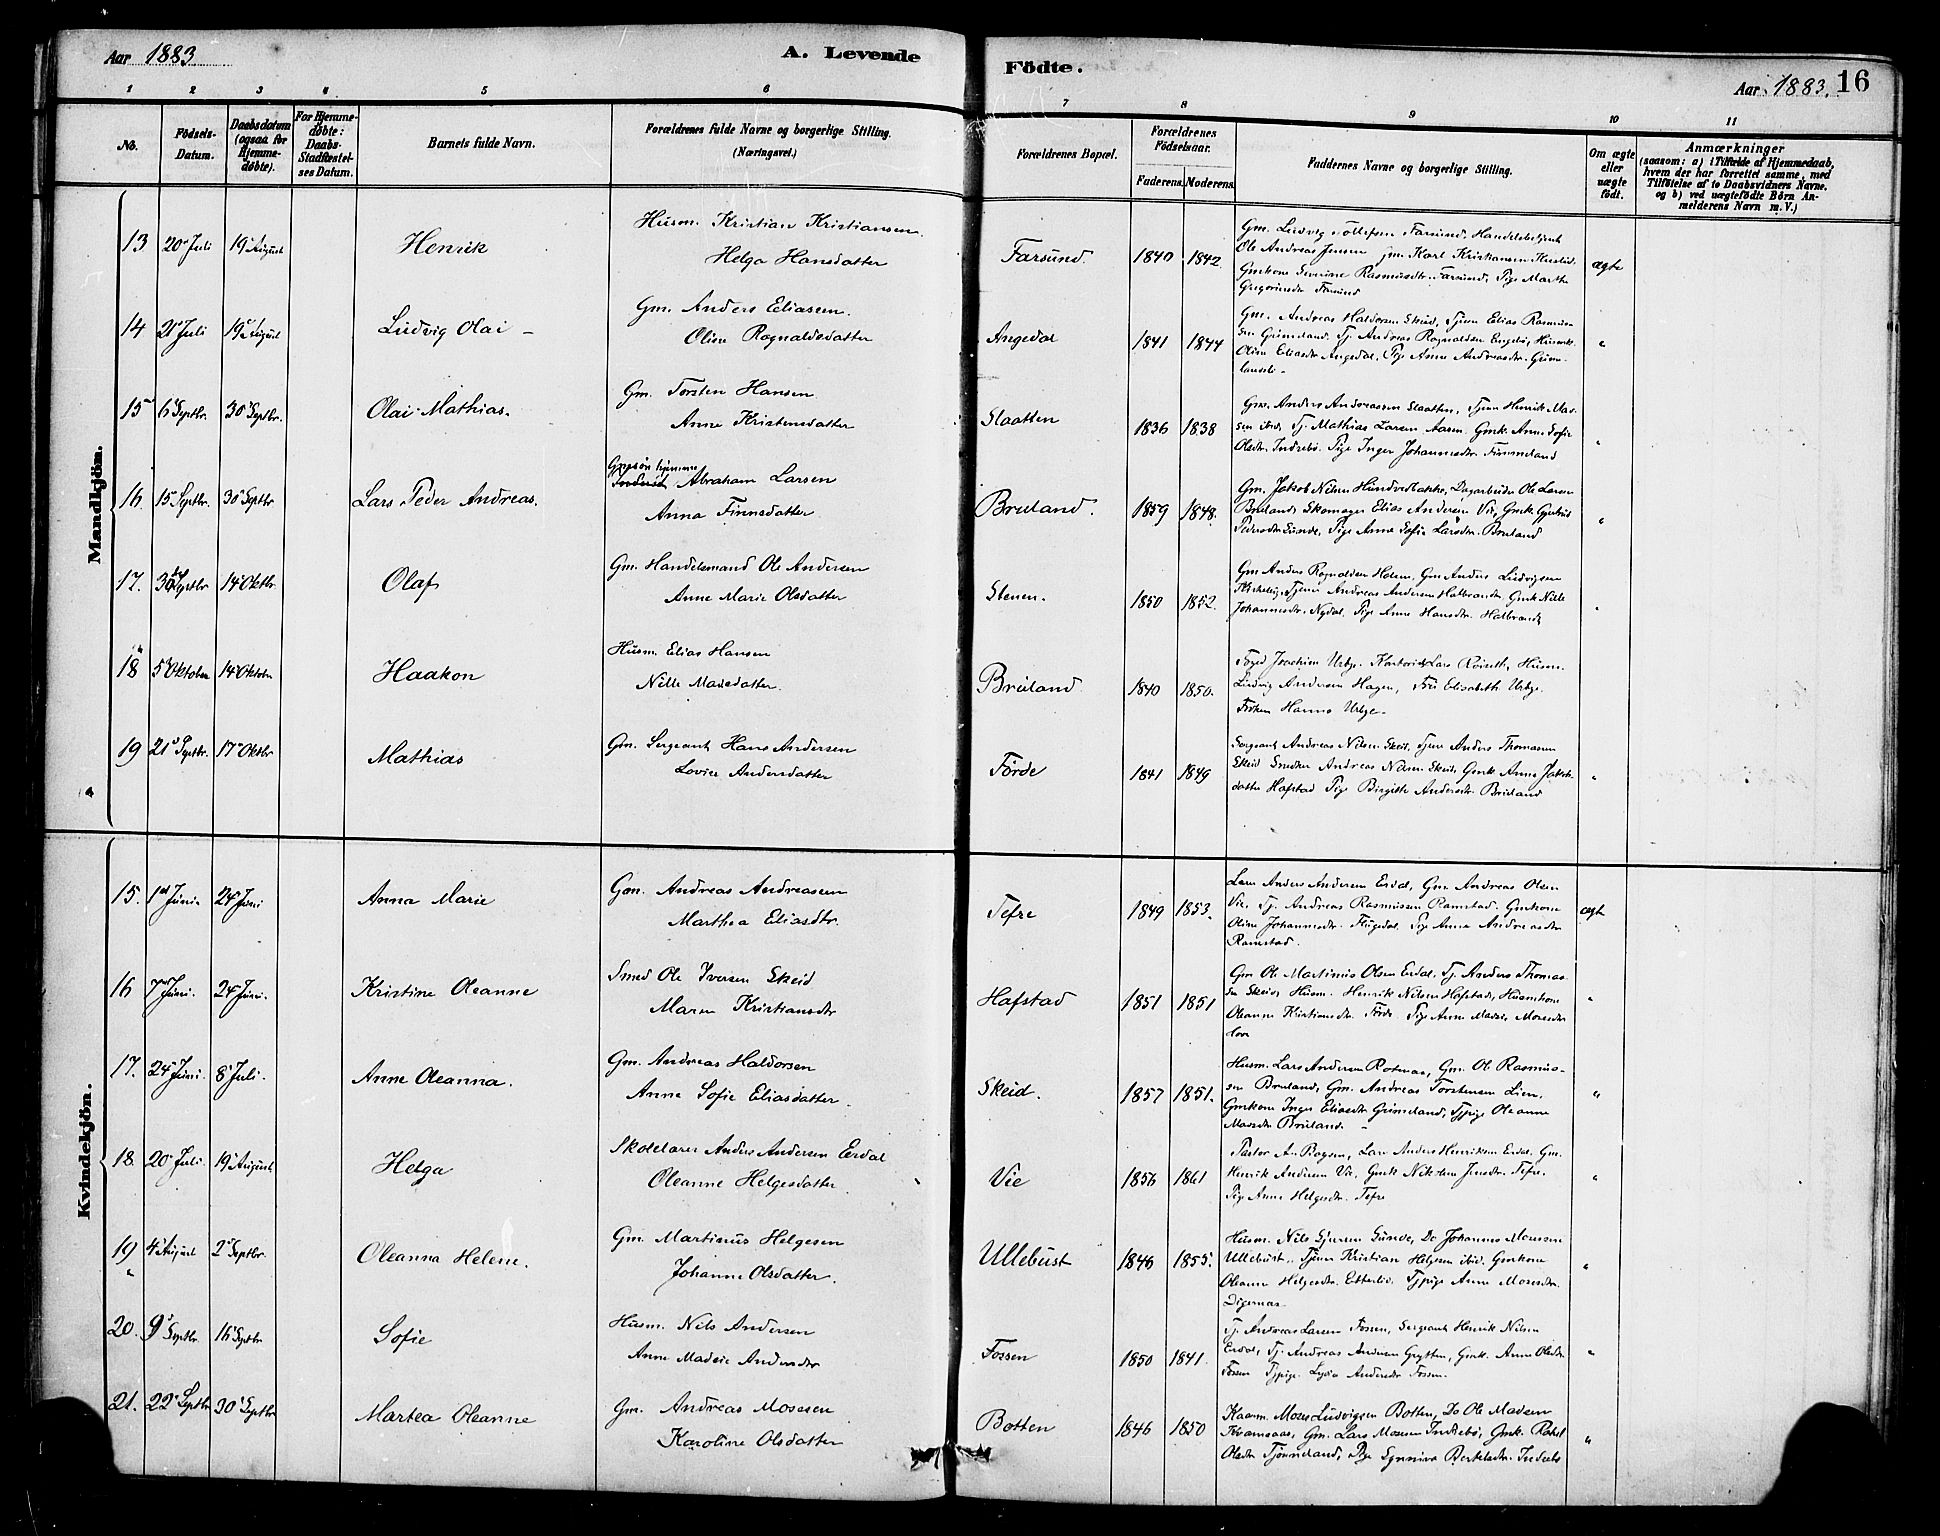 Aar 1883
A. Levende
Födte.
Aar 1883. 16
1 2 3 4 5 6 7 8 9 10 11
No.
Födsels-
Datum.
Daabsdatum
(ogsaa for
Hjemme-
døbte).
For Hjemme-
døbte:
Daabs-
Stadfæstel-
ses Datum.
Barnets fulde Navn.
Forældrenes fulde Navne og borgerlige Stilling.
(Næringsvei.)
Forældrenes Bopæl.
Forældrenes
Födselsaar.
Faderens. Moderens.
Faddernes Navne og borgerlige Stilling.
Om ægte
eller
uægte
födt.
Anmærkninger
(saasom: a) i Tilfælde af Hjemmedaab,
hvem der har forrettet samme, med
Tilføielse af to Daabsvidners Navne,
og b) ved uægtefödte Börn An-
melderens Navn m. V.)
Mandkjön.
13 20 Juli 19 August Henrik
Husm. Kristian Kristiansen
Helga Hansdatter
Farsund. 1840 1842.
Gm. Ludvig Tollefsen Farsund, Handelsbetjent
Ole Andreas Jensen Gm. Karl Kristiansen
Gmkone Severine Rasmusdtr. Farsund, Pige Marthe
Gregoriusdtr Farsund
ægte
14 21 Juli 19 August Ludvig Olai -
Gm. Anders Eliasen.
Oline Rognaldsdatter
Angedal 1841 1844
Gm. Andreas Haldorsen Skeid, Tjener Elias Rasmus-
sen Grimeland. Tj. Andreas Rognaldsen Engebø, Husmk.
Oline Eliasdtr Angedal. Pige Anne Andreasdtr. Grime-
"
15 6 Septbr. 30 Septbr. Olai Mathias.
Gm. Torsten Hansen
Anne Kristensdatter
Slaatten 1836 1838
Gm. Anders Andreassen Slaatten, Tjener Henrik Mad-
sen ibid, Tj. Mathias Larsen Aasen. Gmk. Anne Sofie
Olsdtr. Indrebø. Pige Inger Johannesdtr. Fimmeland
"
16 15 Septbr. 30 Septbr Lars Peder Andreas.
Gmssøn hjemme
Abraham Larsen
Anna Finnsdatter
Bruland. 1859 1848.
Gm. Jakob Nilsen Hundvedbakke, Dagarbeider Ole Larsen
Bruland, Skomager Elias Andersen Vie, Gmk. Gjertrud
Pedersdtr Sunde, Pige Anne Sofie Larsdtr. Bruland
"
17. 30 Septbr 14 Oktbr. Olaf
Gm. Handelsmand Ole Andersen
Anne Marie Olsdatter
Stenen. 1850 1852.
Gm Anders Rognaldsen Holsen, Gm Anders Ludvigsen
Tjener Andreas Andersen Halbrandt, Gmk Nille
Johannesdtr. Nydal. Pige Anne Hansdtr. Halbrandt
"
18 5 Oktober 14 Oktober Haakon
Husm. Elias Hansen
Nille Madsdatter.
Bruland 1840 1850.
Foged Joachim Urbye. Kontorist Lars Roiseth, Husm.
Ludvig Andersen Hagen, Frue Elisabeth Urbye.
Frøken Hanna Urbye.
19 21 Septbr. 17 Oktbr Mathias
Gm. Sergeant Hans Andersen
Lovise Andersdatter
Förde 1841 1849
Sergeant Andreas Nilsen Skeid, Tjener Anders Thomasen
Skeid Snedker Andreas Nilsen Skeid, Gmk Anne Jakobs-
datter Hafstad Pige Birgith Andersdtr. Bruland
"
Kvindekjön.
15. 1 Juni 24 Juni Anna Marie
Gm. Andreas Andreasen
Marthea Eliasdtr.
Tefre 1849 1853.
Lærer Anders Andersen Erdal, Gm Andreas Olsen
Vie, Tj. Andreas Rasmussen Ramstad. Gmkone
Oline Johannesdtr. Flugedal. Pige Anna Andreasdtr
Ramstad.
ægte
16 7 Juni. 24 Juni. Kristine Oleanne
Smed Ole Iversen Skeid
Maren Kristiansdtr
Hafstad 1851 1851
Gm Ole Martinus Olsen Erdal, Tj. Anders Thomas-
sen Skeid, Husm. Henrik Nilsen Hafstad, Husmkone
Oleanne Kristiansdtr. Förde. Pige Anne Madsie Mosesdtr
"
17. 24 Juni. 8 Juli. Anne Oleanna.
Gm. Andreas Haldorsen
Anne Sofie Eliasdatter
Skeid. 1857 1851.
Husm. Lars Andersen Rotenes, Gm. Ole Rasmus-
sen Bruland, Gm. Andreas Torstensen Lien,
Gmkone Inger Eliasdtr Grimeland, Tjpige Oleanne
Madsdtr Bruland. -
"
18. 20 Juli. 19 August Helga
Skolelærer Anders Andersen Erdal
Oleanne Helgesdatter
Vie 1856 1861
Pastor A. Bogsen, Lærer Anders Henriksen Erdal, Gm.
Henrik Andersen Vie, Gmk Nikoline Jensdtr. Tefre.
Pige Anne Helgesdtr. Tefre
"
19 4 August 2 Septbr. Oleanna Helene.
Gm. Martinus Helgesen
Johanne Olsdatter.
Ullebust 1846 1855.
Husm. Nils Sjursen Sunde, Do Johannes Monsen
Ullebust, Tjener Kristian Helgesen ibid. Gmkone
Oleanne Helgesdtr. Etterlid. Tjpige Anne Mosesdtr.
Digernæs.
"
20. 9 Septbr. 16 Septbr Sofie
Husm. Nils Andersen
Anne Madsie Andersdtr
Fossen 1850 1841.
Tj. Andreas Larsen Fossen, Sergeant Henrik Nilsen
Erdal, Tj. Andreas Andersen Grytten, Gmk. Anne Olsdtr
Fossen Tjpige. Lydia Andersdtr Fossen.
"
21. 22 Septbr 30 Septbr Martea Oleanne
Gm. Andreas Mosesen
Karoline Olsdatter
Botten 1846 1850
Kaarm. Moses Ludvigsen Botten, Do Ole Madsen
Kvamsaas, Gm. Lars Mosesen Indrebø, Gmk. Rakel
Olsdtr Tjønneland, Pige Synneva Bertelsdtr. Indrebø
"